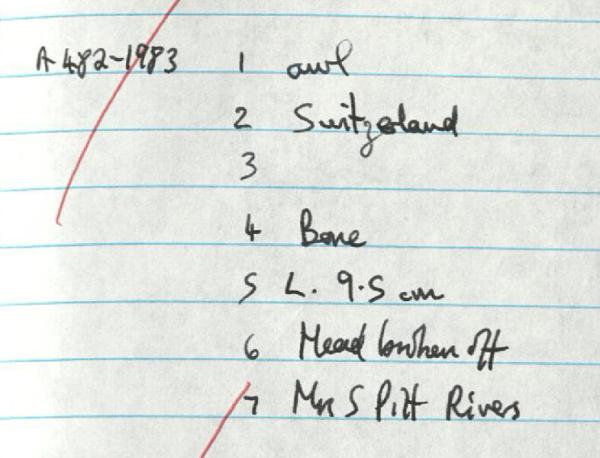 A 482-1983 1 awl
2 Switzerland
3
4 Bone
5 L. 9.5 cm
6 Head broken off
7 Mrs S Pitt Rivers